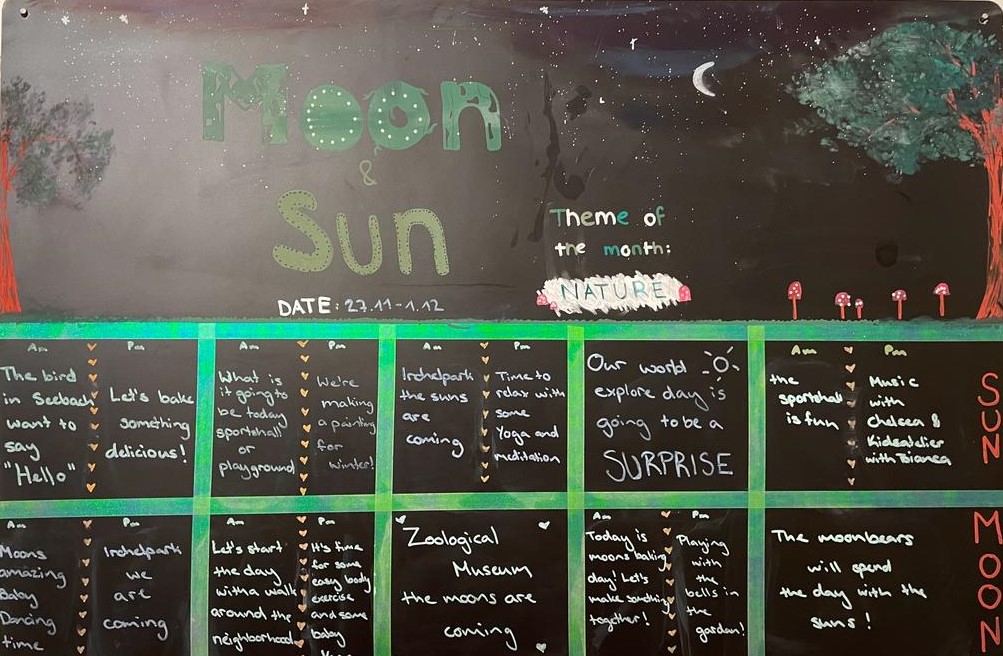 Moon
&
Sun
Theme of
the month:
NATURE
DATE: 27.11-1.12
Am
Pm
The bird
in Seebach
want to
say
"Hello"
Let's bake
something
delicious!
Am
Pm
What is
it going to
be today
sportshall
or
playground
We're
making
a painting
for
winter!
Am
Pm
Irchelpark
the suns
are
coming
Time to
relax with
some
Yoga and
meditation
Our world
explore day is
going to be a
SURPRISE
Am
Pm
the
sportshall
is fun
Music
with
Chelsea &
Kidsatelier
with Bianca
SUN
Am
Pm
Moons
amazing
Baby
Dancing
time
Irchelpark
we
are
coming
Am
Pm
Let's start
the day
with a walk
around the
neighborhood
It's time
for some
easy body
exercise
and some
baby
Zoological
Museum
the moons are
coming
Am
Pm
Today is
moons baking
day! Let's
make something
together!
Playing
with
the
bells in
the
garden!
The moonbears
will spend
the day with the
suns!
MOON